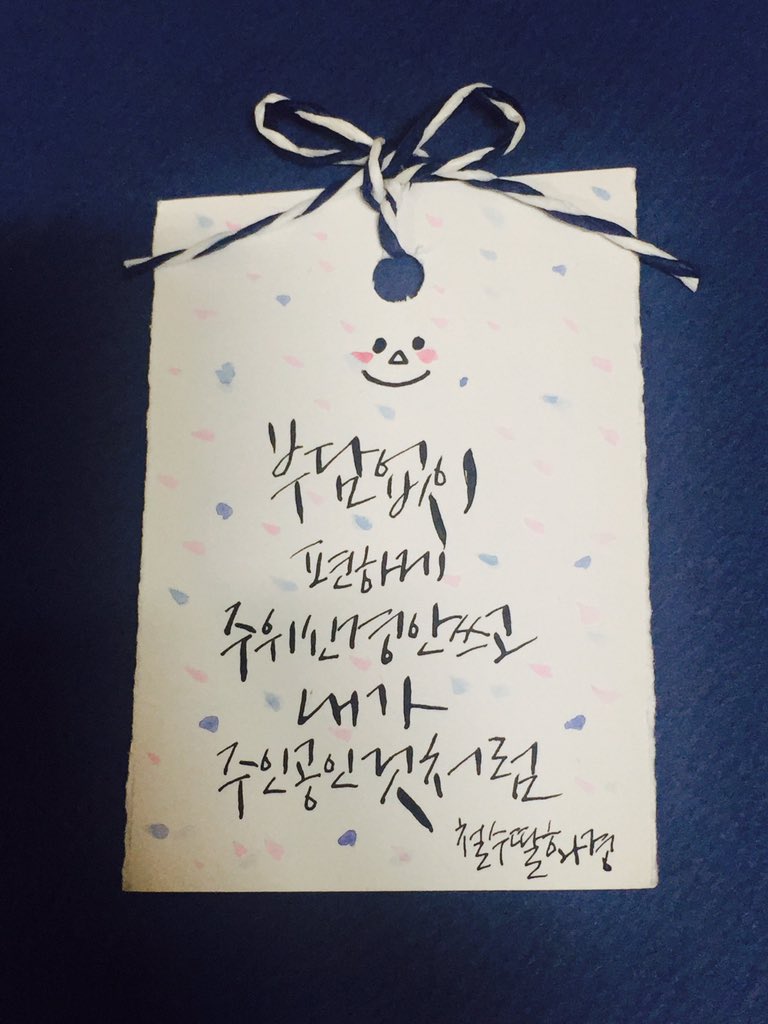 부담없이
편하게
주위신경안쓰고
내가
주인공인것처럼
철수딸화경